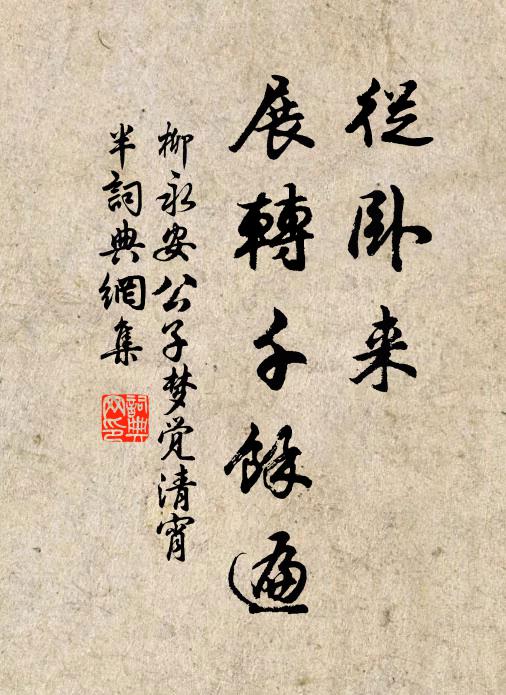 從卧来
展轉千餘遍
柳永安公子梦觉清宵
半詞典網集
詞典网印